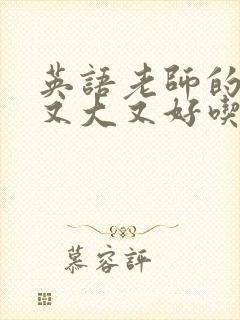 英語老師的
又大又好喫
慕容評